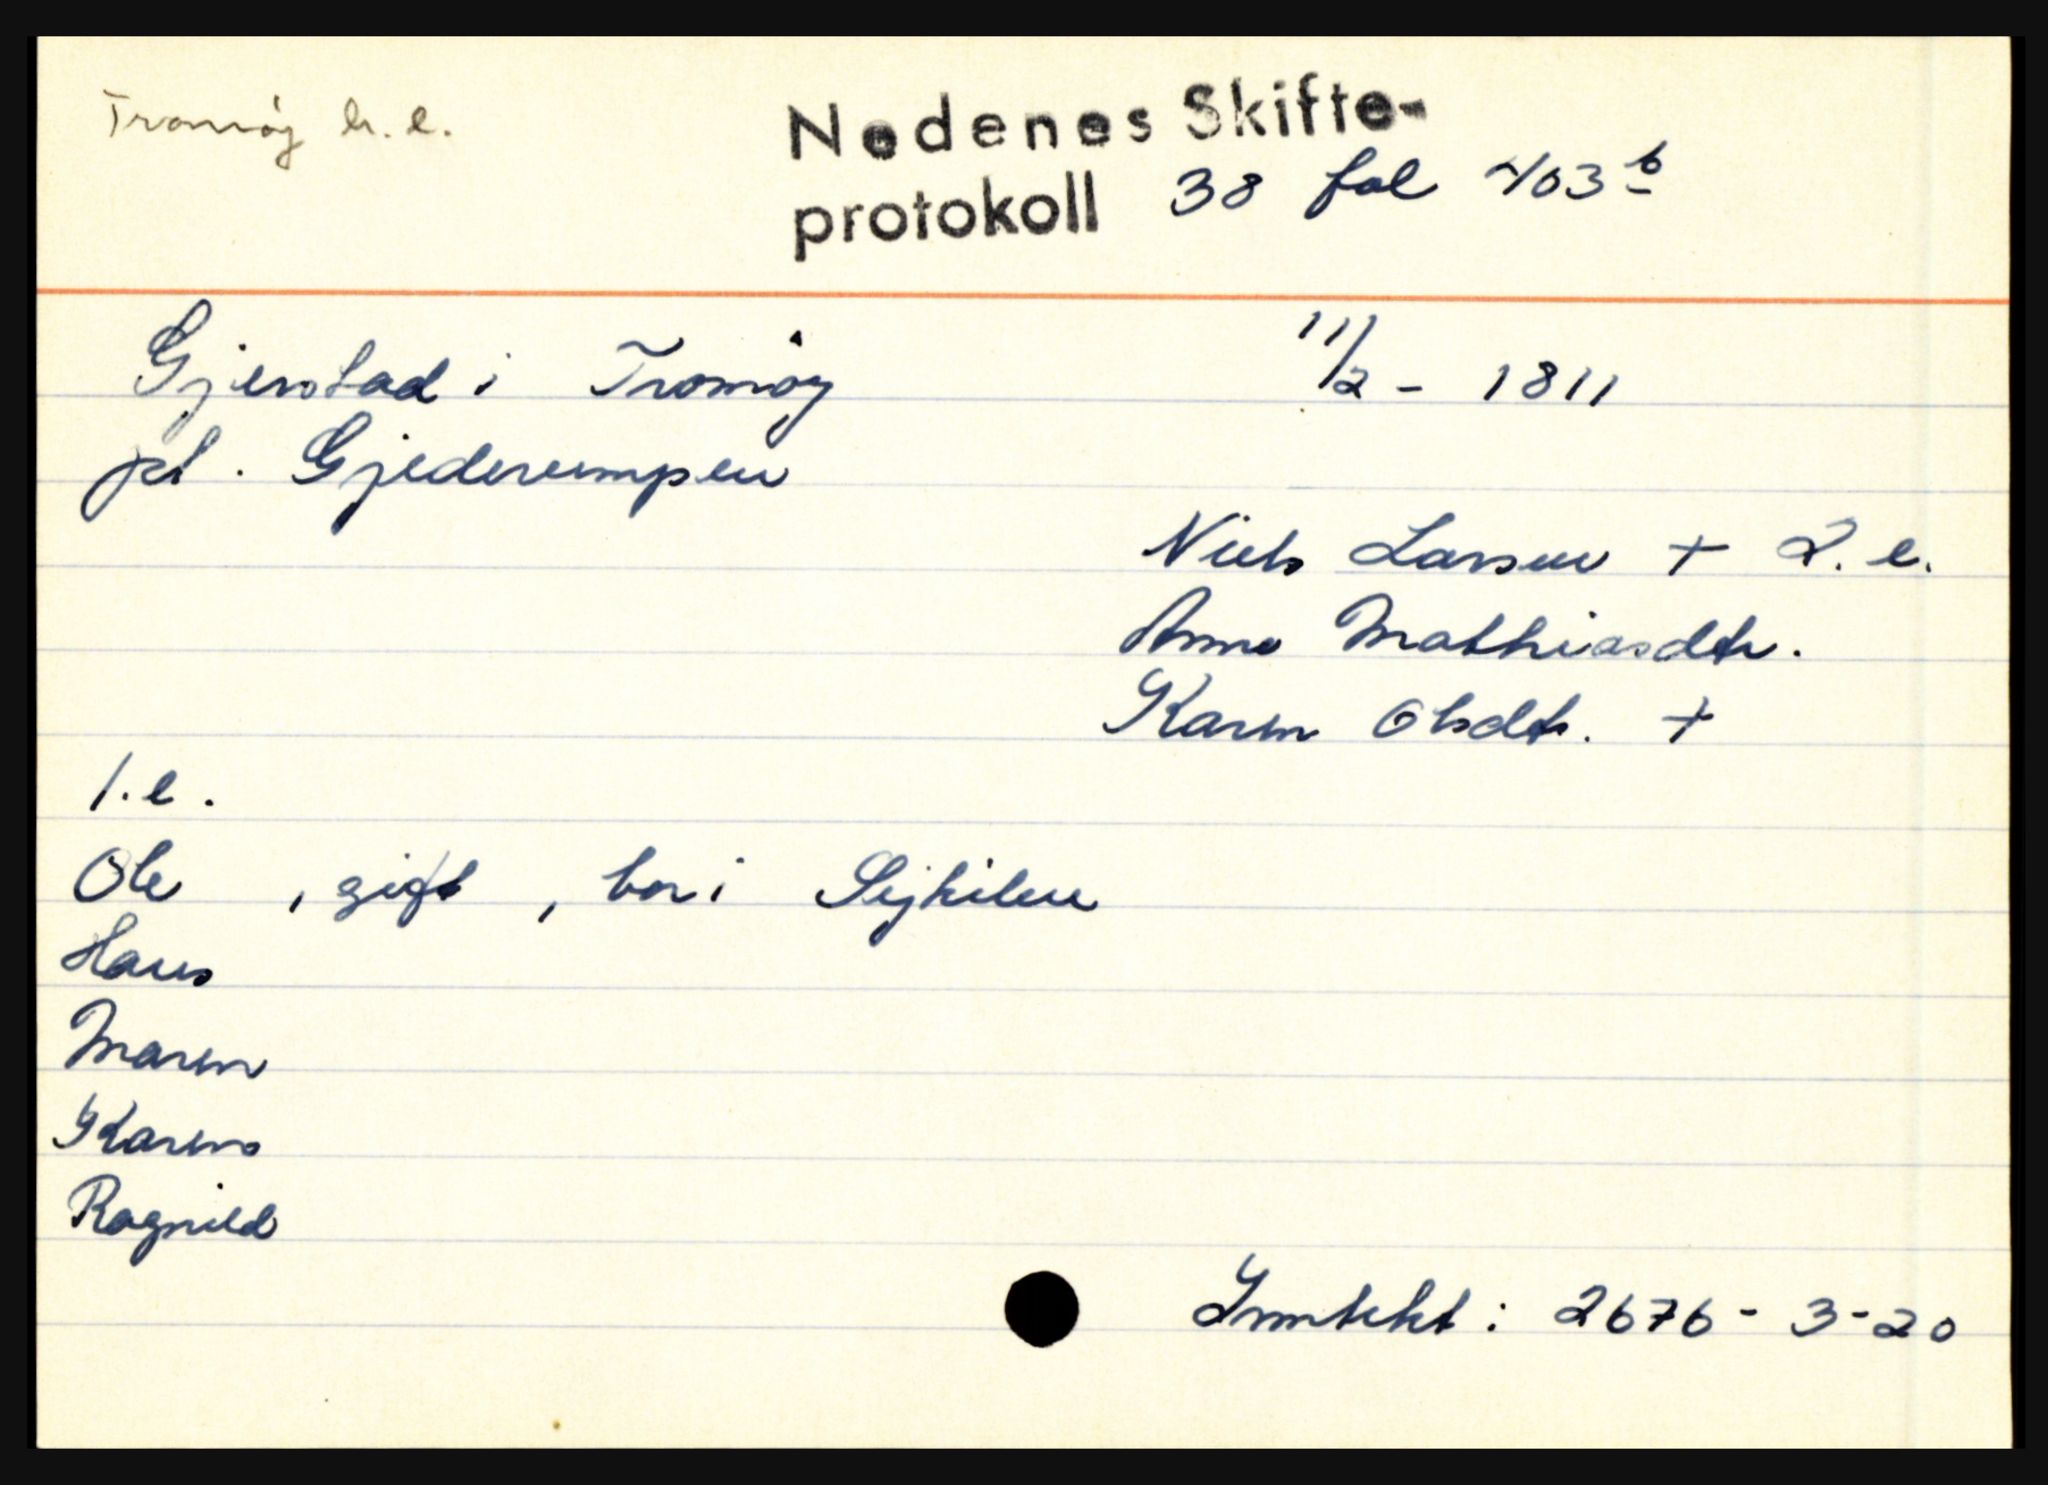 Tromøy h.e.
Nedenes Skifte-
protokoll 38 fol 403 b
Gjerstad i Tromøy 11/2 - 1811
pl. Gjederumpen
Niels Larsen + 2. e.
Anne Mathiasdtr.
Karen Olsdtr. +
1.e.
Ole , gift , bor i Sejkilen
Hans
Maren
Karen
Ragnild
Inntekt : 2676 - 3 - 20